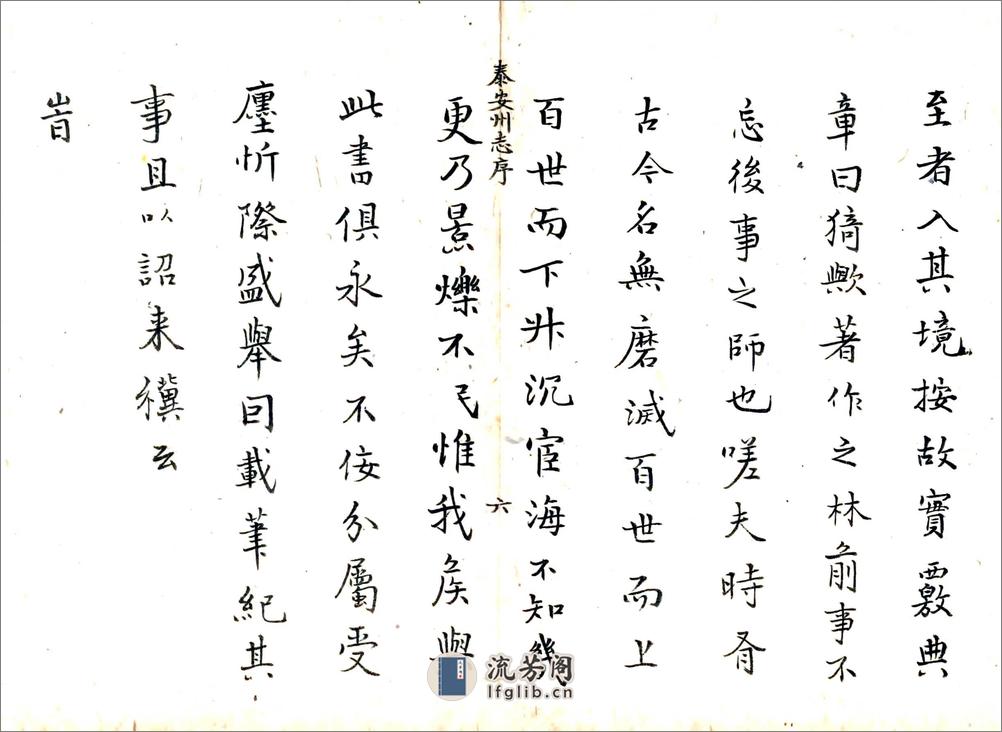 至者入其境按故實覈典
章曰猗歟著作之林前事不
忘後事之師也嗟夫時有
古今名無磨滅百世而上
泰安州志序
六
百世而下升沉宦海不知幾
更乃景爍不惟我矦與
此書俱永矣不佞分屬受
廛忻際盛舉囘載筆紀其
事且以詔来禩云
旹
流芳阁
lfglib.cn